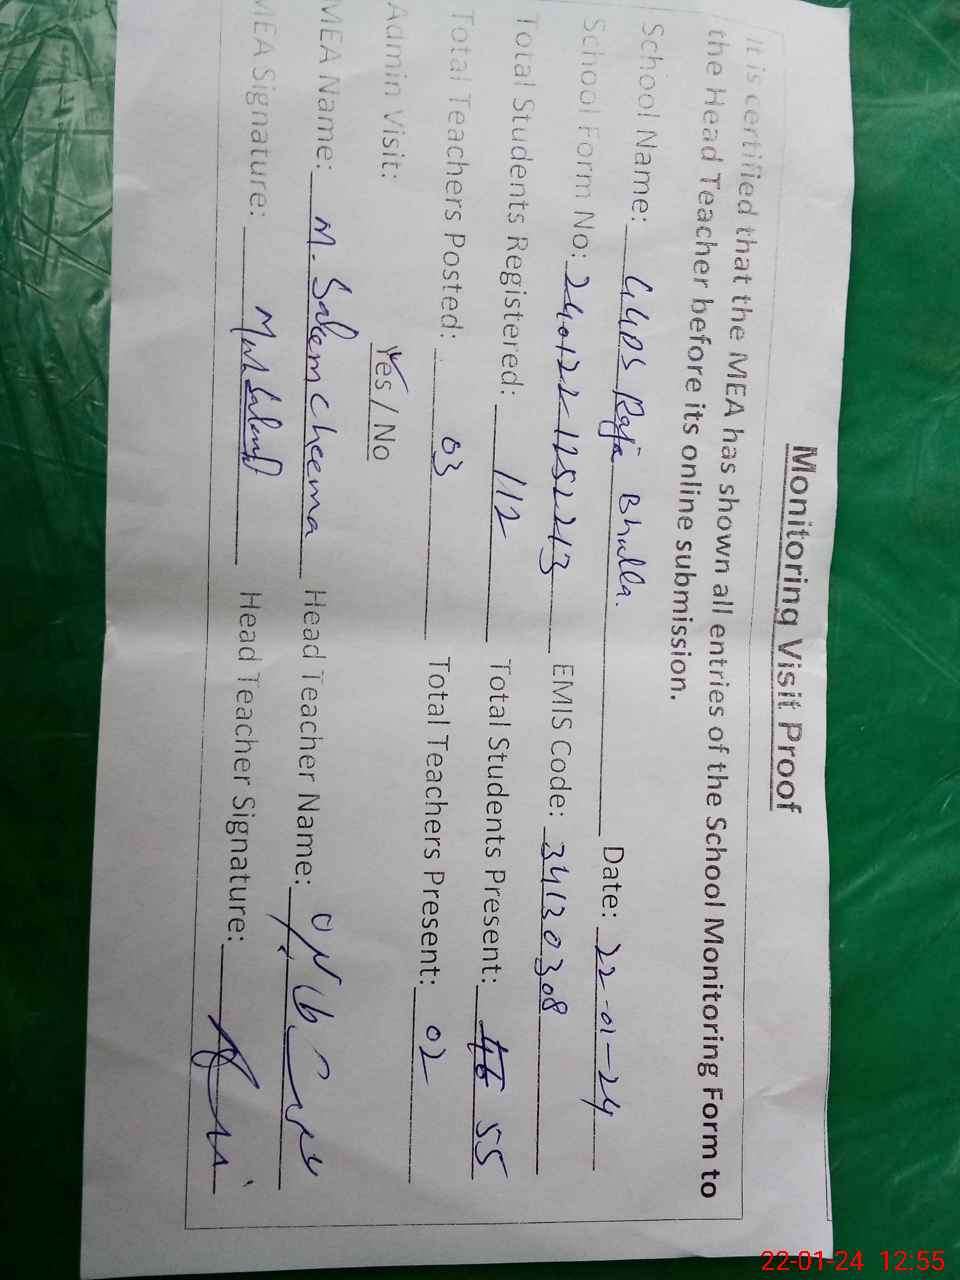 Monitoring Visit Proof
It is certified that the MEA has shown all entries of the School Monitoring Form to
the Head Teacher before its online submission.
School Name: GGPS Raja Bhulla. Date: 22-01-24
School Form No: 240122-1252213 EMIS Code: 34130308
Total Students Registered: 112 Total Students Present: 46 55
Total Teachers Posted: 03 Total Teachers Present: 02
Admin Visit: Yes / No
MEA Name: M. Saleem Cheema Head Teacher Name:
MEA Signature: Head Teacher Signature:
22-01-24 12:55